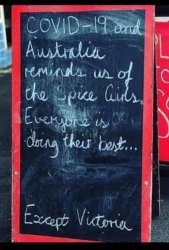 COVID-19 and
Australia
reminds us of
the Spice Girls.
Everyone is
doing their best...
Except Victoria